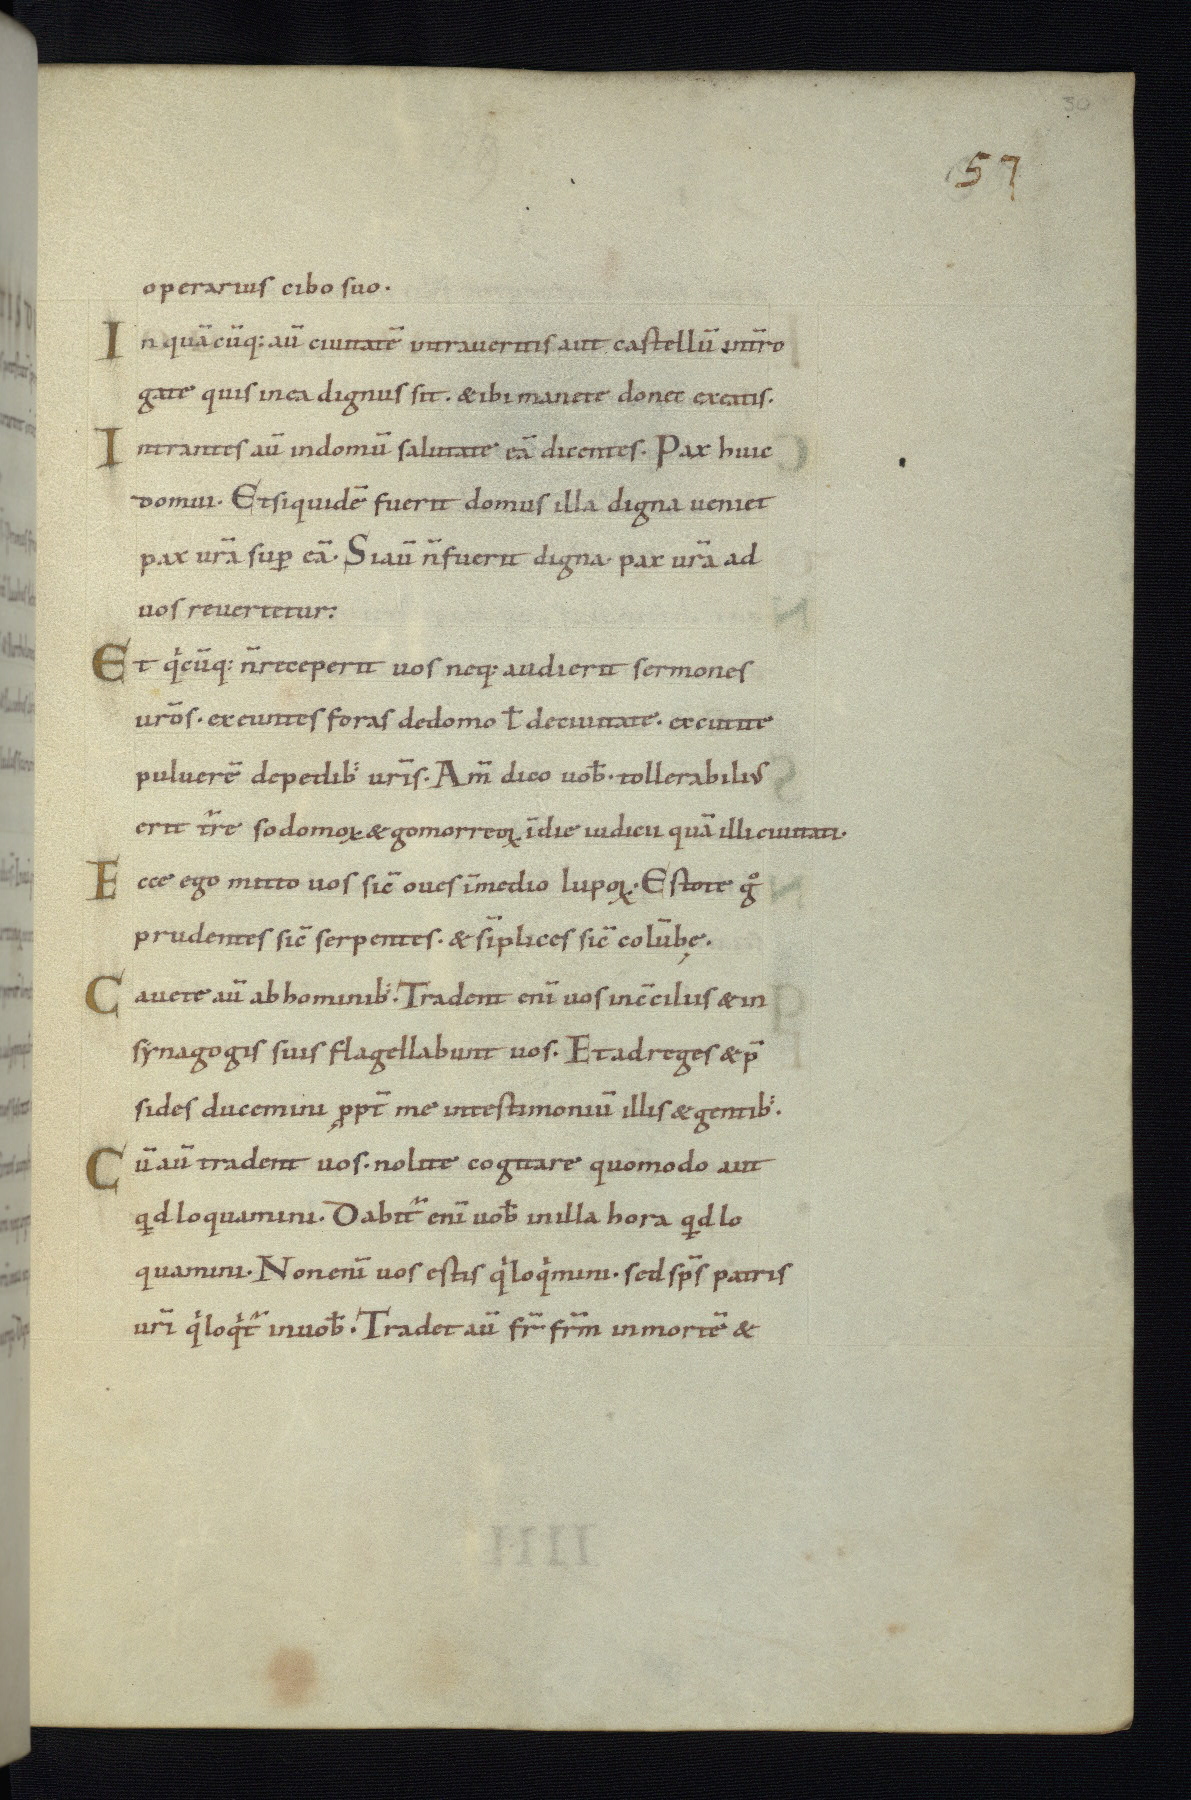 30
57
operarius cibo suo.
In quā cūq; aū ciuitatē intraueritis aut castellū int̄ro
gate quis in ea dignus sit. & ibi manete donec exeatis.
Intrantes aū in domū salutate eā dicentes. Pax huic
domui. Et siquidē fuerit domus illa digna ueniet
pax ur̄a sup̱ eā. Si aū n̄ fuerit digna. pax ur̄a ad
uos reuertetur:
Et qͥcūq; n̄ receperit uos neq; audierit sermones
ur̄os. exeuntes foras de domo ł de ciuitate. excutite
puluerē de pedib; ur̄is. Am̄ dico uob̄. tollerabilius
erit tr̄e sodomoꝝ & gomorreoꝝ ī die iudicii quā illi ciuitati.
Ecce ego mitto uos sic̄ oues ī medio lupoꝝ. Estote gͦ
prudentes sic̄ serpentes. & sīplices sic̄ colūbę.
Cauete aū ab hominib;. Tradent enī uos in c̄ciliis & in
synagogis suis flagellabunt uos. Et ad reges & p̄
sides ducemini ꝓpt̄ me in testimoniū illis & gentib;.
Cū aū tradent uos. nolite cogitare quomodo aut
qͥd loquamini. Dabit̄ enī uob̄ in illa hora qͥd lo
quamini. Non enī uos estis qͥ loqͥmini. sed sp̄s patris
ur̄i qͥ loqͥt̄ in uob̄. Tradet aū fr̄ fr̄m in mortē &
IIII